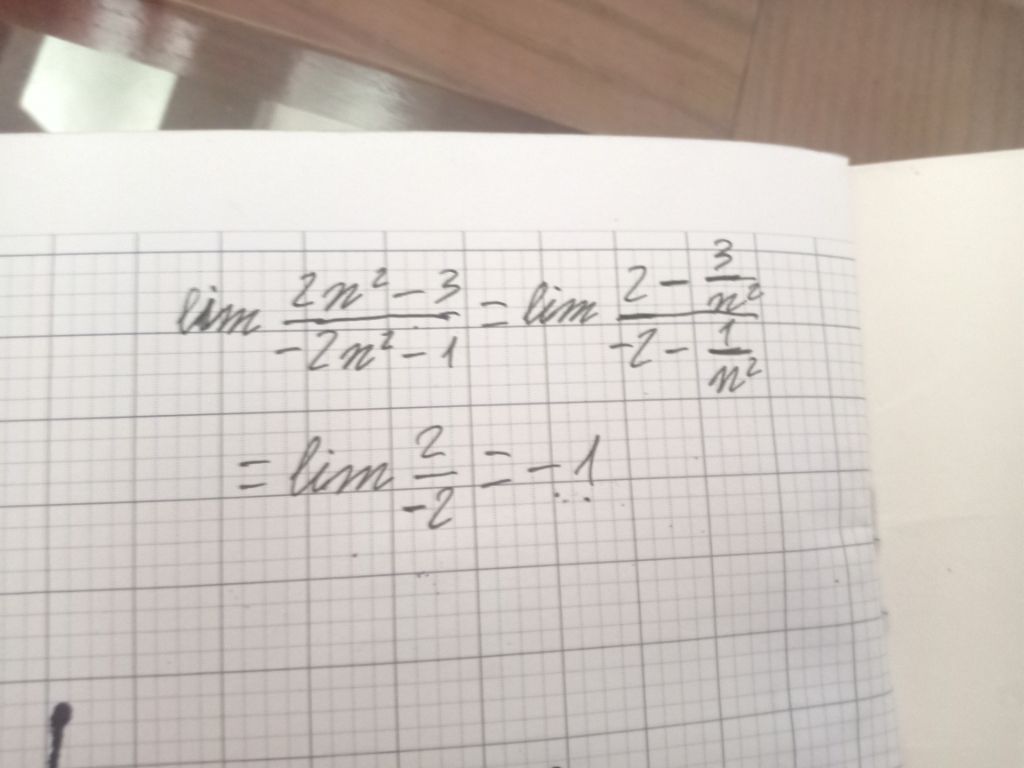 lim (2n² - 3)/(-2n² - 1) = lim (2 - 3/n²)/(-2 - 1/n²)
= lim 2/-2 = -1